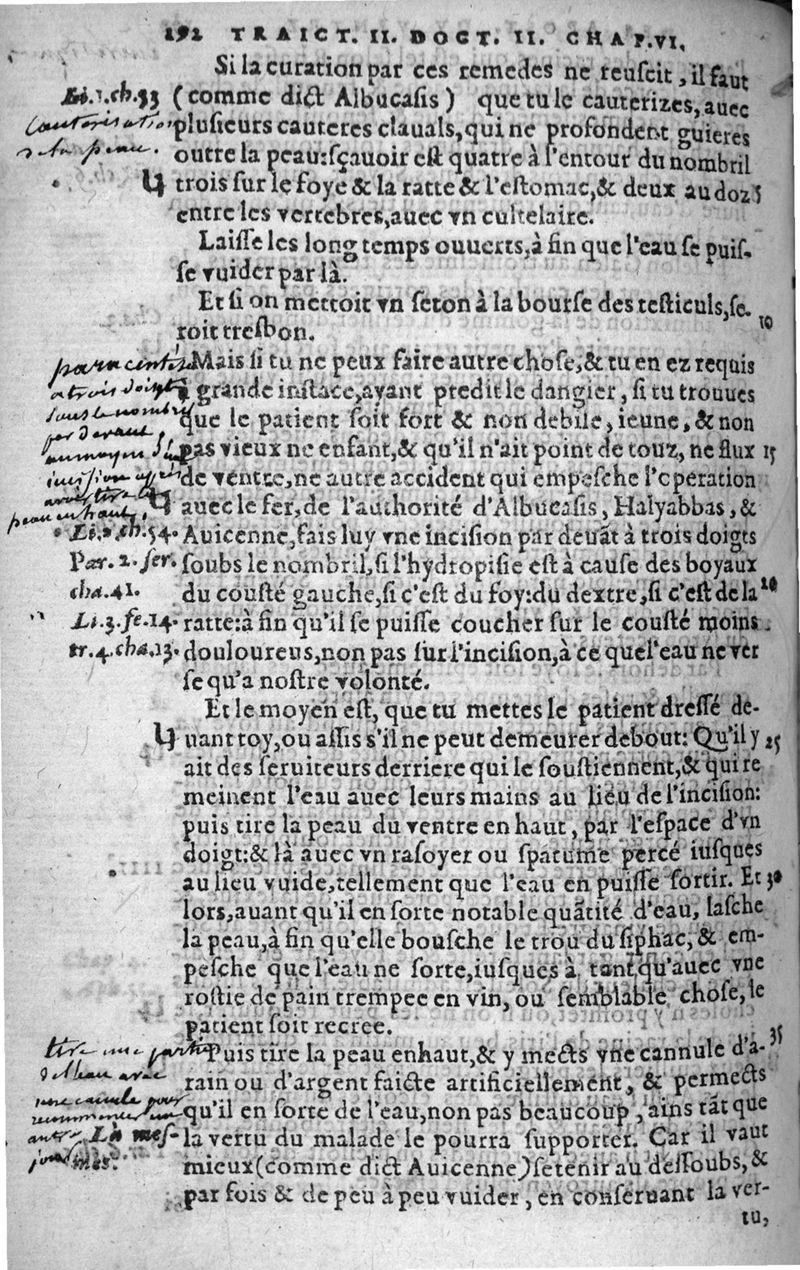 192 TRAICT. II. DOCT. II. CHAP. VI.
Si la curation par ces remedes ne reuscit, il faut
Li. 1. ch. 33 (comme dict Albucasis) que tu le cauterizes, auec
Cauterisation plusieurs cauteres clauals, qui ne profondent guieres
de la peau. outre la peau: sçauoir est quatre à l'entour du nombril
trois sur le foye & la ratte & l'estomac, & deux au doz 5
entre les vertebres, auec vn cultelaire.
Laisse les long temps ouuerts, à fin que l'eau se puis-
se vuider par là.
Et si on mettoit vn seton à la bourse des testiculs, se- 10
roit tresbon.
paracentese Mais si tu ne peux faire autre chose, & tu en ez requis
a trois doigts à grande instāce, ayant predit le dangier, si tu trouues
sous le nombril que le patient soit fort & non debile, ieune, & non
par devant pas vieux ne enfant, & qu'il n'ait point de touz, ne flux 15
au moyen d'une
incision apres de ventre, ne autre accident qui empesche l'operation
avoir tire la
peau en haut. auec le fer, de l'authorité d'Albucasis, Halyabbas, &
Li. 1. ch. 54. Auicenne, fais luy vne incision par deuāt à trois doigts
Par. 2. ser. soubs le nombril, si l'hydropisie est à cause des boyaux
cha. 41. du cousté gauche, si c'est du foy: du dextre, si c'est de la 20
Li. 3. fe. 14. ratte: à fin qu'il se puisse coucher sur le cousté moins
tr. 4. cha. 13. douloureus, non pas sur l'incision, à ce que l'eau ne ver
se qu'a nostre volonté.
Et le moyen est, que tu mettes le patient dressé de-
uant toy, ou assis s'il ne peut demeurer debout: Qu'il y 25
ait des seruiteurs derriere qui le soustiennent, & qui re
meinent l'eau auec leurs mains au lieu de l'incision:
puis tire la peau du ventre en haut, par l'espace d'vn
doigt: & là auec vn rasoyer ou spatume percé iusques
au lieu vuide, tellement que l'eau en puisse sortir. Et 30
lors, auant qu'il en sorte notable quātité d'eau, lasche
la peau, à fin qu'elle bousche le trou du siphac, & em-
pesche que l'eau ne sorte, iusques à tant, qu'auec vne
rostie de pain trempee en vin, ou semblable chose, le
patient soit recree. 35
tire une partie Puis tire la peau enhaut, & y mects vne cannule d'a-
de l'eau avec rain ou d'argent faicte artificiellement, & permects
une canule pour
recommencer un qu'il en sorte de l'eau, non pas beaucoup, ains tāt que
autre Là mes- la vertu du malade le pourra supporter. Car il vaut
jour mes. mieux (comme dict Auicenne) se tenir au dessoubs, &
par fois & de peu à peu vuider, en conseruant la ver-
tu,